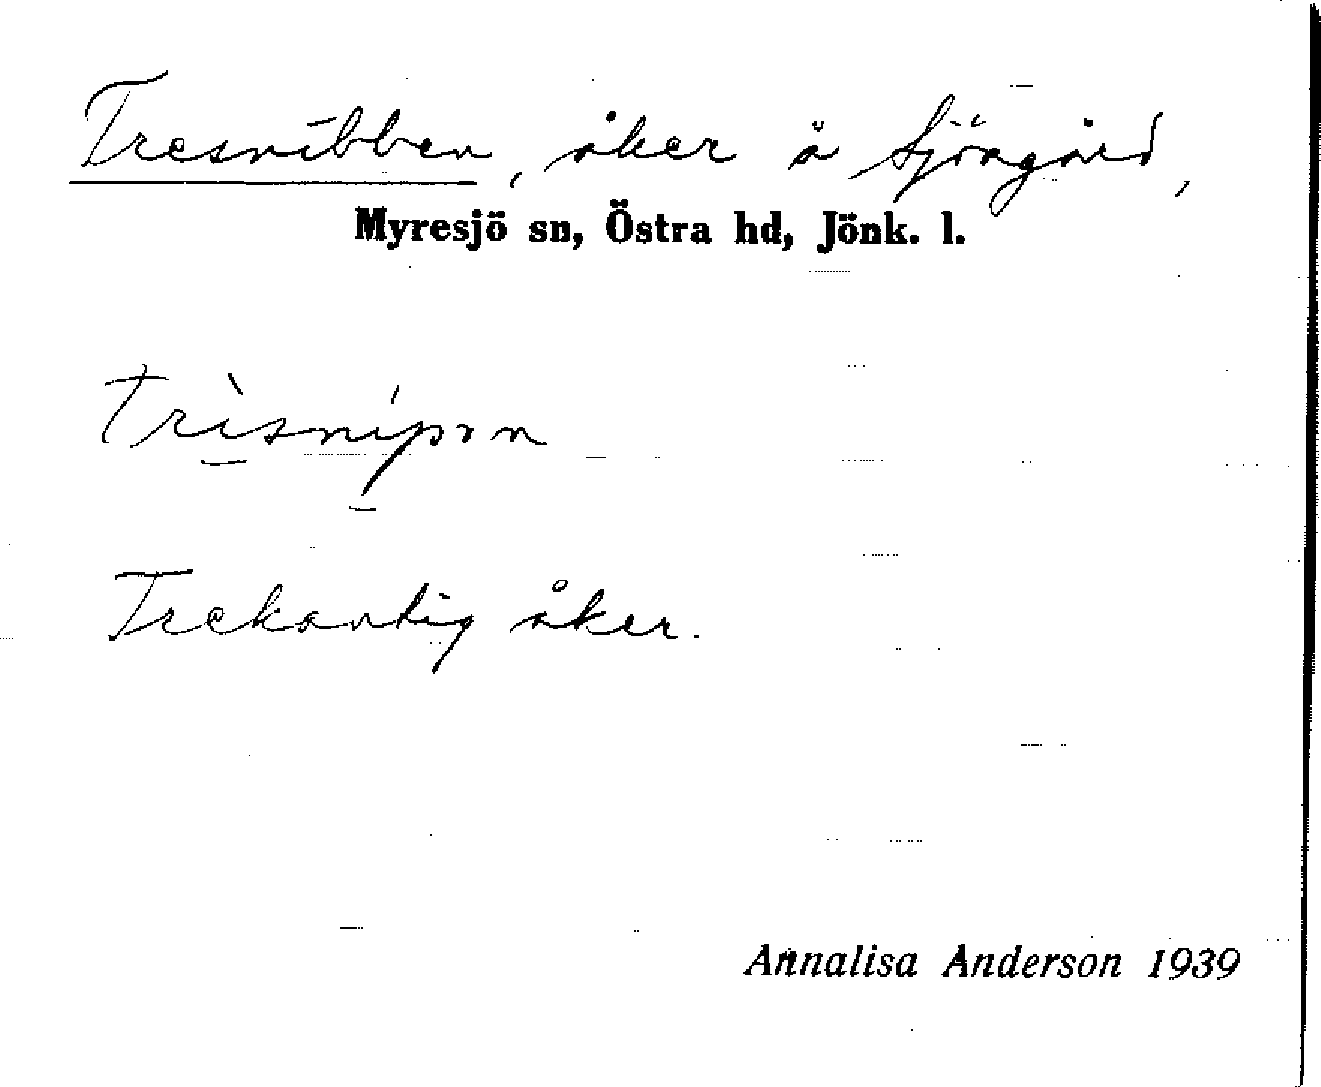 Tresnibben, åker å Sjöagård,
Myresjö sn, Östra hd, Jönk. l.
trìsnípən
Trekantig åker.
Annalisa Anderson 1939